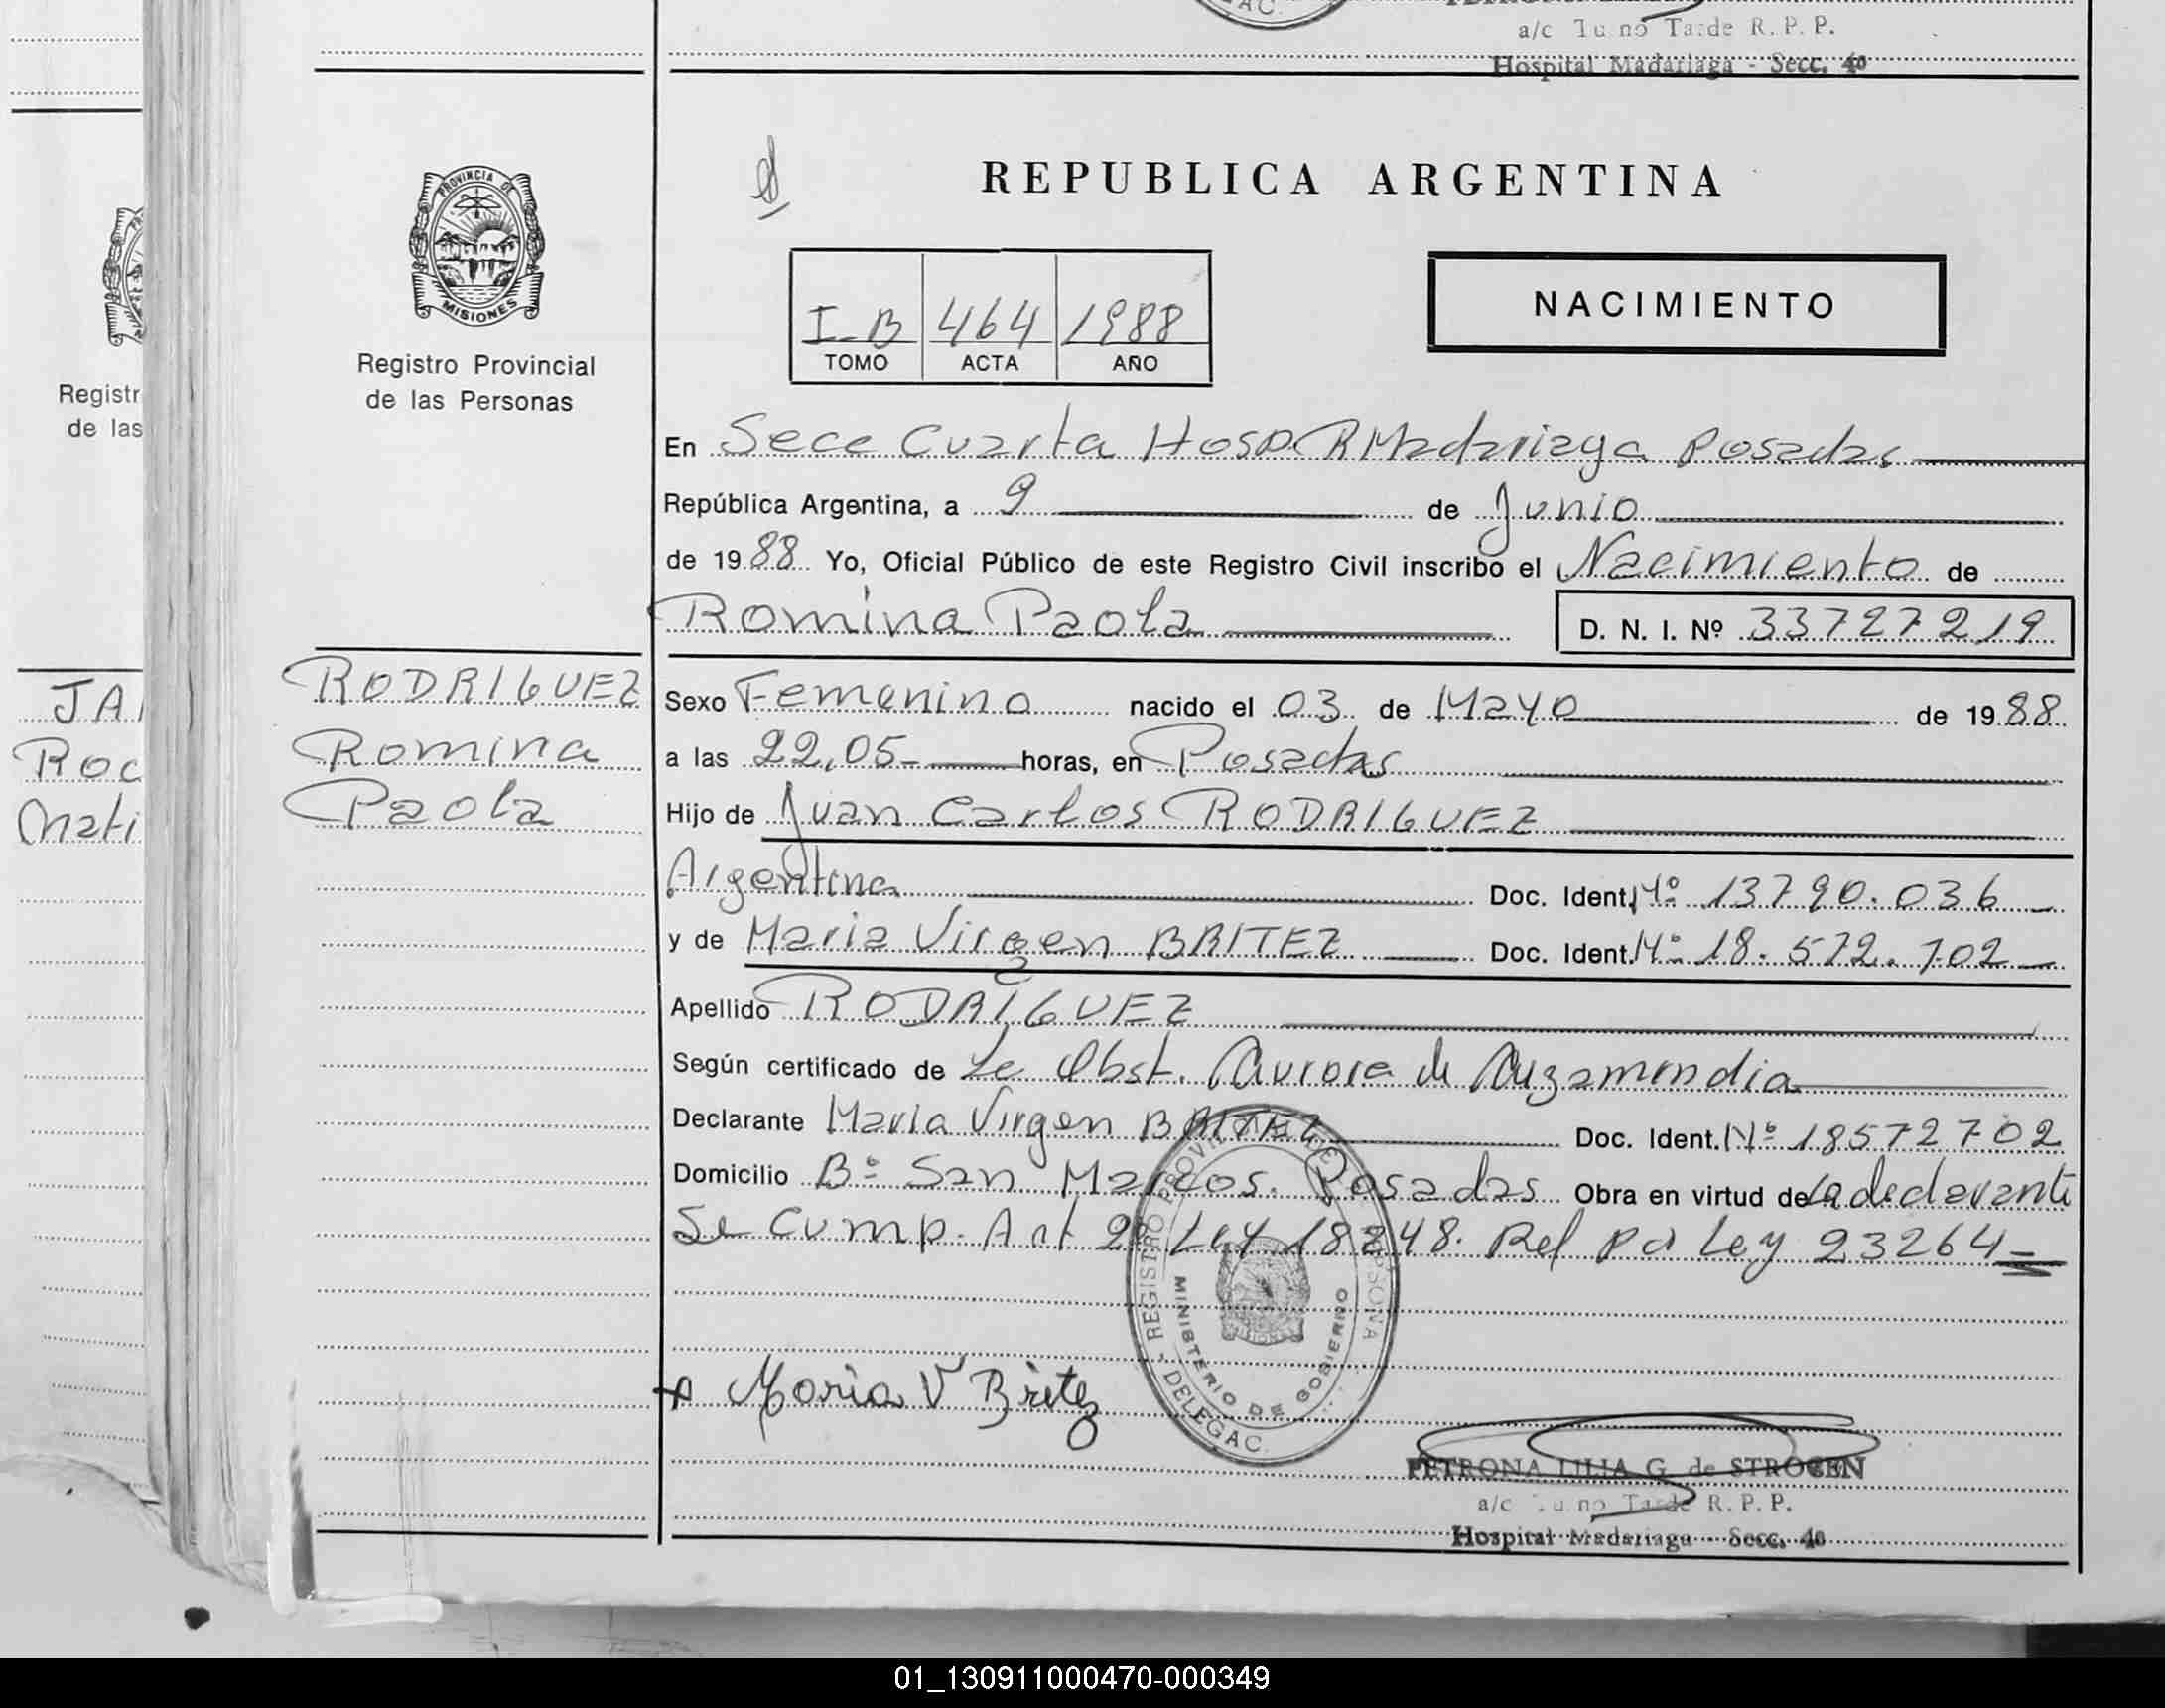 a/c Tu no Tarde R. P. P.
Hospital Madariaga - Secc. 4a
PROVINCIA DE
MISIONES
REPUBLICA ARGENTINA
I-B 464 1988
TOMO ACTA AÑO
NACIMIENTO
Registro Provincial
de las Personas
Registr
de las
En Secc Cuarta Hosp. R Madariaga Posadas
República Argentina, a 9 de Junio
de 1988 Yo, Oficial Público de este Registro Civil inscribo el Nacimiento de
Romina Paola D. N. I. Nº 33727219
JA
Roc
Mati
RODRIGUEZ
Romina
Paola
Sexo Femenino nacido el 03 de Mayo de 1988
a las 22,05- horas, en Posadas
Hijo de Juan Carlos RODRIGUEZ
Argentina Doc. Ident. Nº 13790.036
y de Maria Virgen BRITEZ Doc. Ident. Nº 18.572.702
Apellido RODRIGUEZ
Según certificado de Le Obst. Aurora de Auzamendia
Declarante Maria Virgen BRITEZ Doc. Ident. Nº 18572702
Domicilio Bº San Marcos. Posadas Obra en virtud de la declarante
Se Cump. Art 2º Ley 18248. Ref pd Ley 23264=
REGISTRO PROVINCIAL DE PERSONA
MINISTERIO DE GOBIERNO
- DELEGAC.
Maria V Britez
PETRONA LILIA G. de STROGEN
a/c Tu no Tarde R. P. P.
Hospital Madariaga - Secc. 4a
01_130911000470-000349